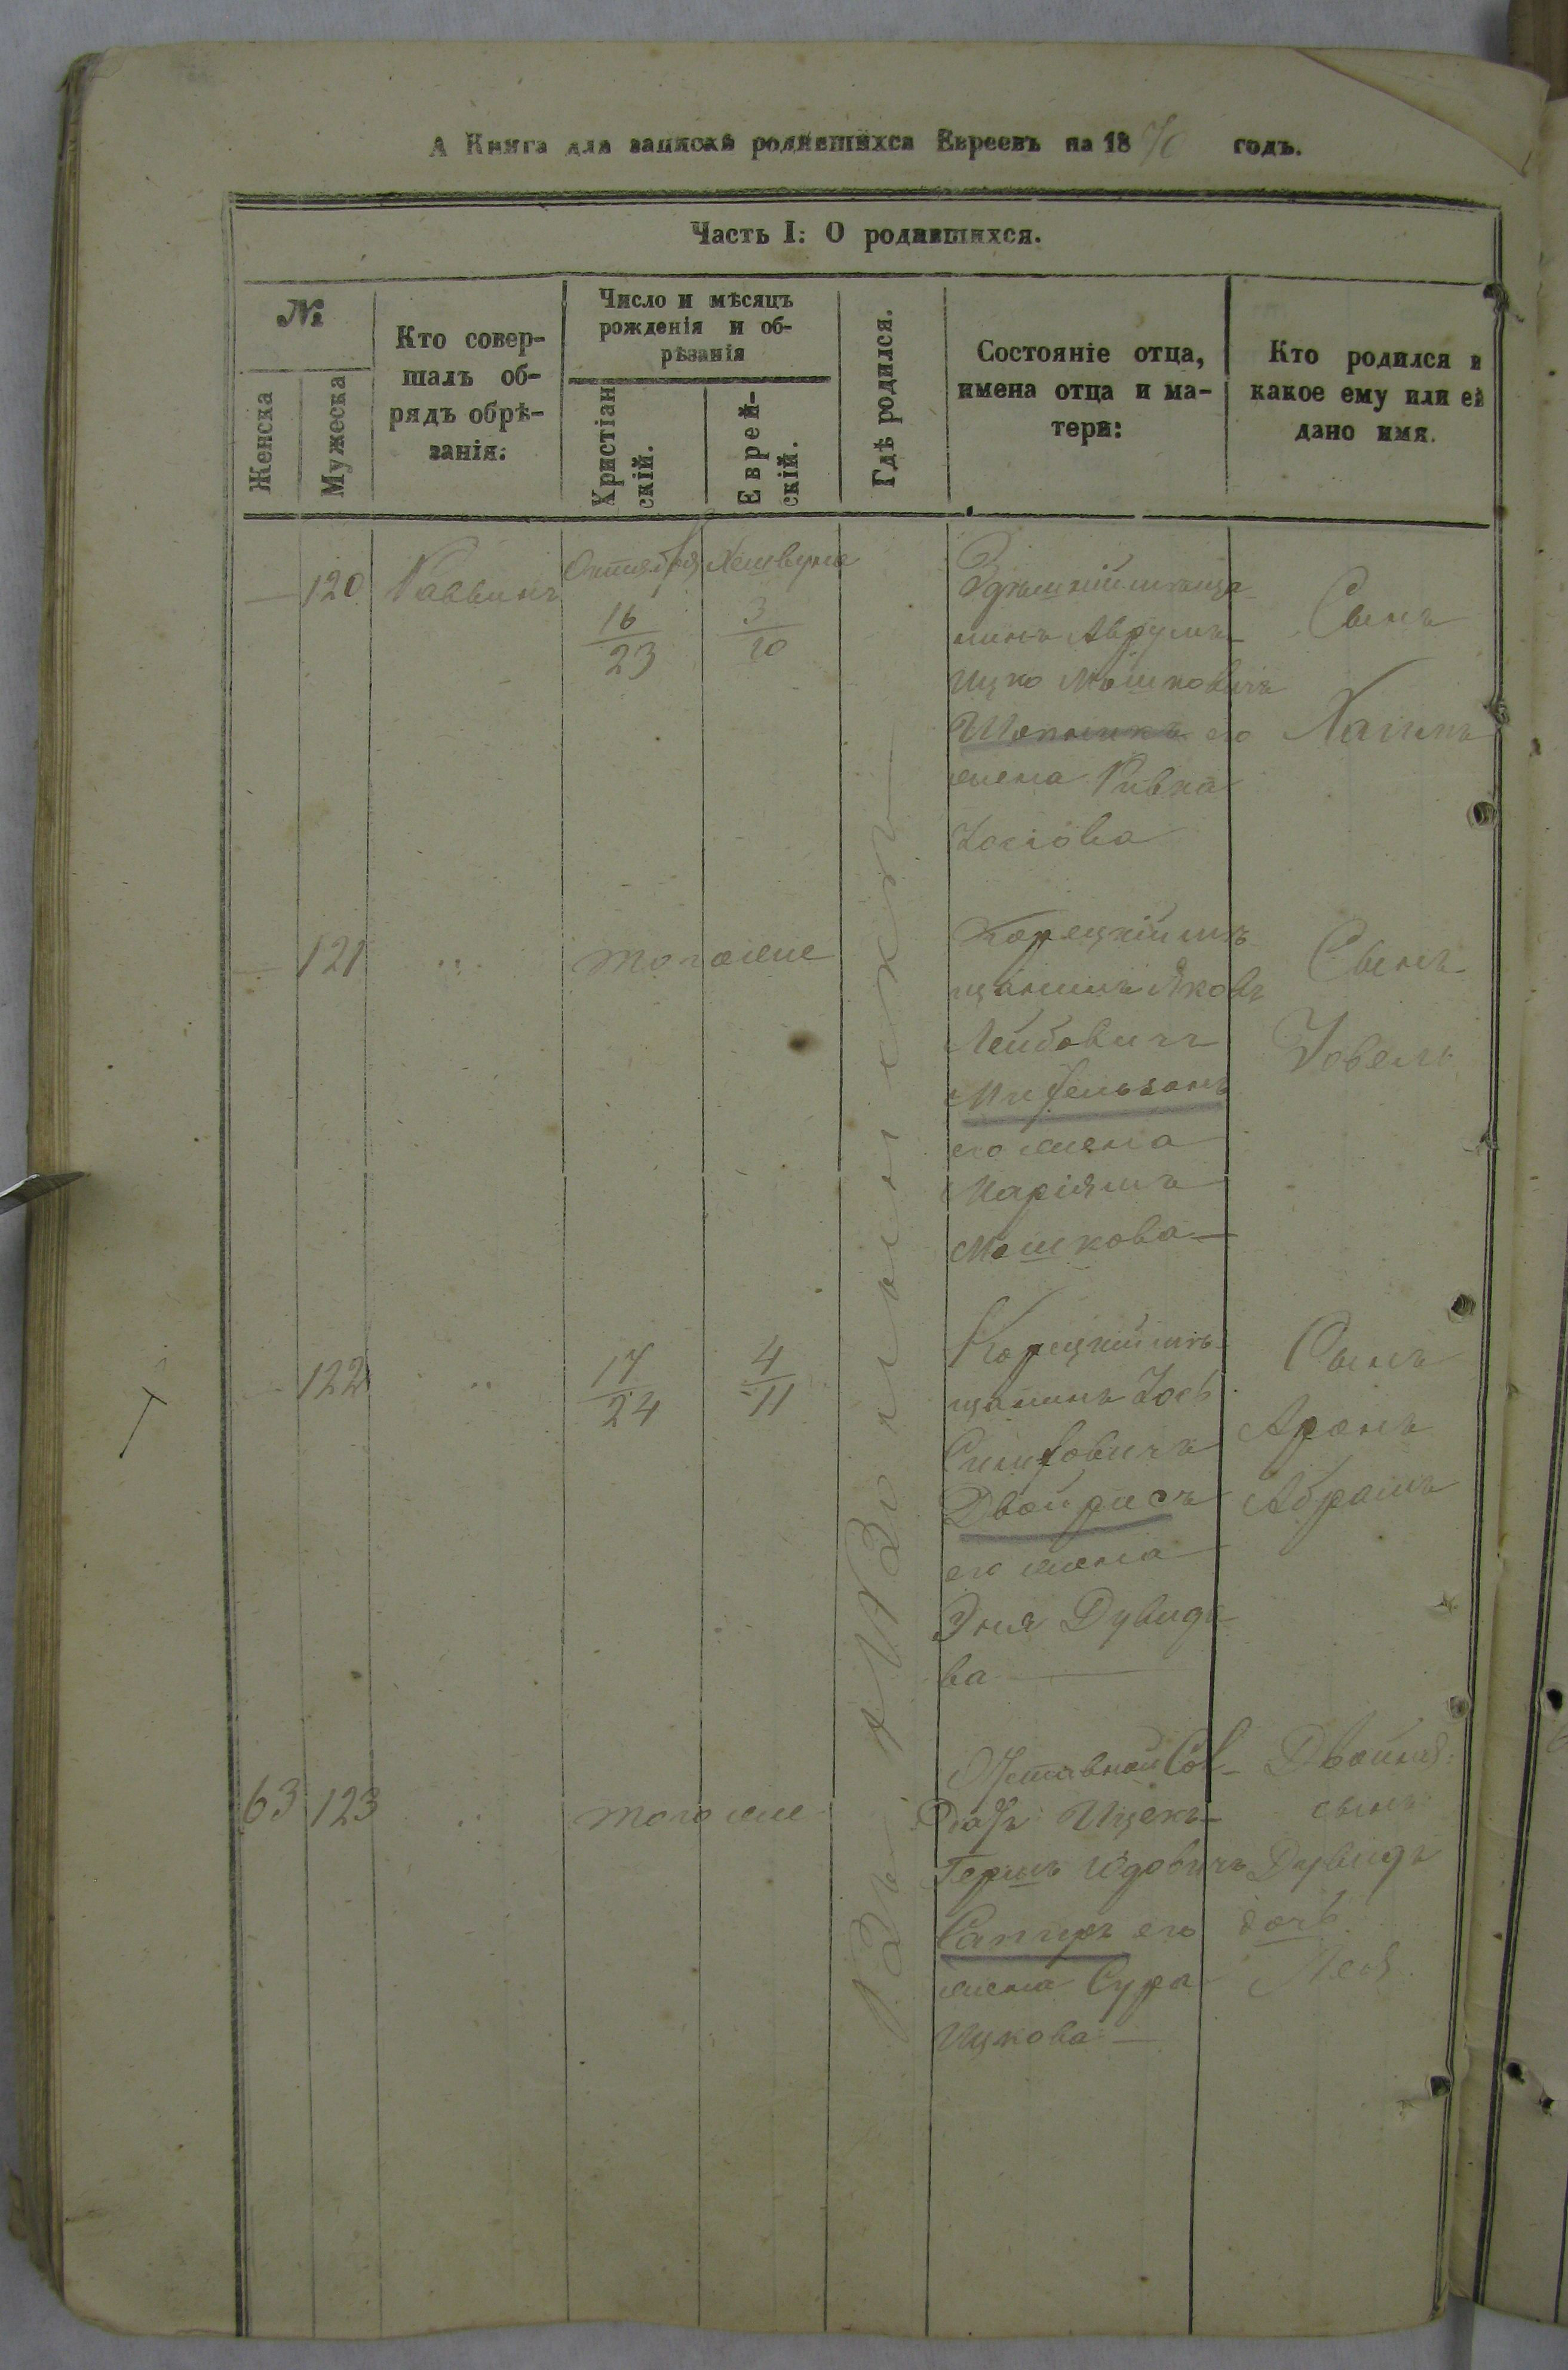 А Книга для записки родившихся Евреевъ на 1870 годъ.
Часть I: О родившихся.
№
Женска
Мужеска
Кто совер-
шалъ об-
рядъ обрѣ-
занія:
Число и мѣсяцъ
рожденія и об-
рѣзанія
Христіан
скій.
Еврей-
скій.
Гдѣ родился.
Состояніе отца,
имена отца и ма-
тери:
Кто родился и
какое ему или ей
дано имя.
— 120 Раввинъ
Октября Хешвуна
16 3
23 10
Здѣшній мѣща-
нинъ Аврумъ-
Ицко Мошковичъ
его
жена Ривка
Іосіова
Сынъ
Хаимъ
— 121 „
тогоже
Корецкій мѣ-
щанинъ Яковъ
Лейбовичъ
его жена
Маріямъ
Мошкова —
Сынъ
— 122 „
17 4
24 11
Корецкій мѣ-
щанинъ Іось
Двойрисъ
его жена
Эня Дувидо-
ва —
Сынъ
Аронъ
Абрамъ
63 123 „
тогоже
Отставной Сол-
датъ Ицекъ-
Гершъ Юдовичъ
его
жена Сура
Ицкова —
Двойня:
сынъ
Дувидъ
дочь
Лея